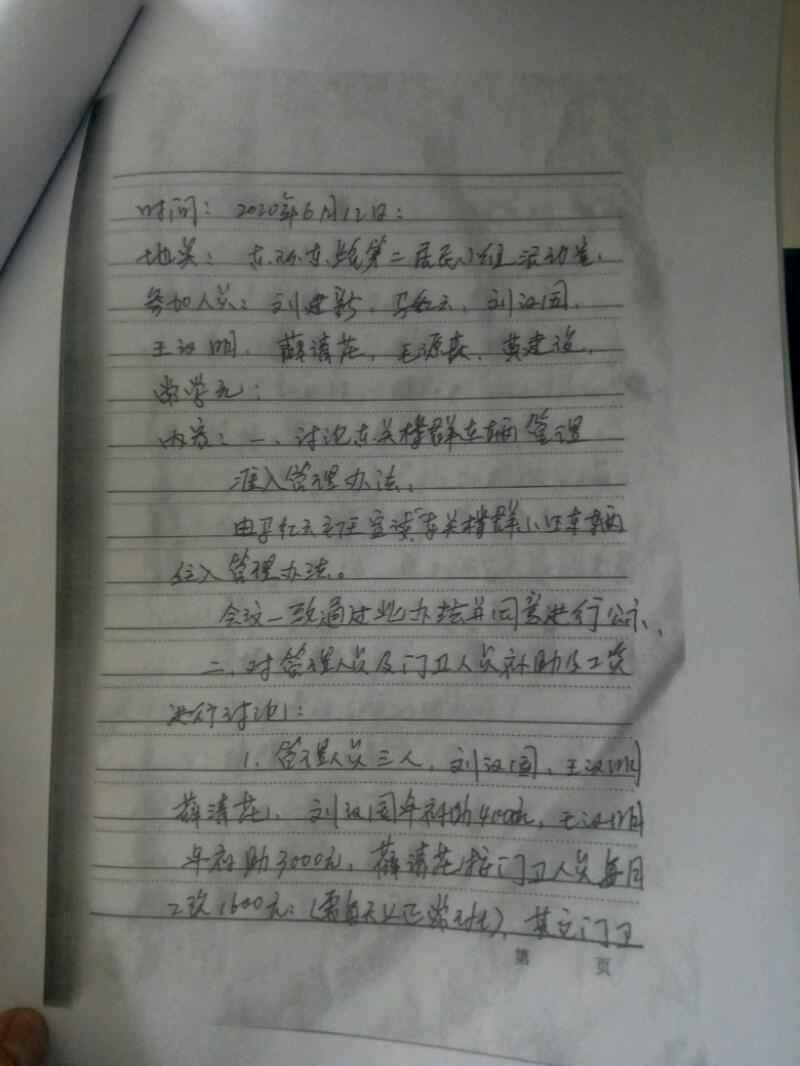 时间：2020年6月12日：
地点：东环东路第二居民小组活动室，
参加人员：刘建新、马红云、刘汉国、
王汉明、薛清花、毛源森、黄建设、
常学礼：
内容：一、讨论东关楼群车辆管理
准入管理办法。
由马红云主任宣读"东关楼群小区车辆
准入管理办法。
会议一致通过此办法并同意进行公示、
二、对管理人员及门卫人员补助及工资
进行讨论：
1、管理人员三人，刘汉国、王汉明
薛清花，刘汉国年补助4000元，王汉明
年补助3000元，薛清花按门卫人员每月
工资1600元；（需每天正常），其它门卫
第 页